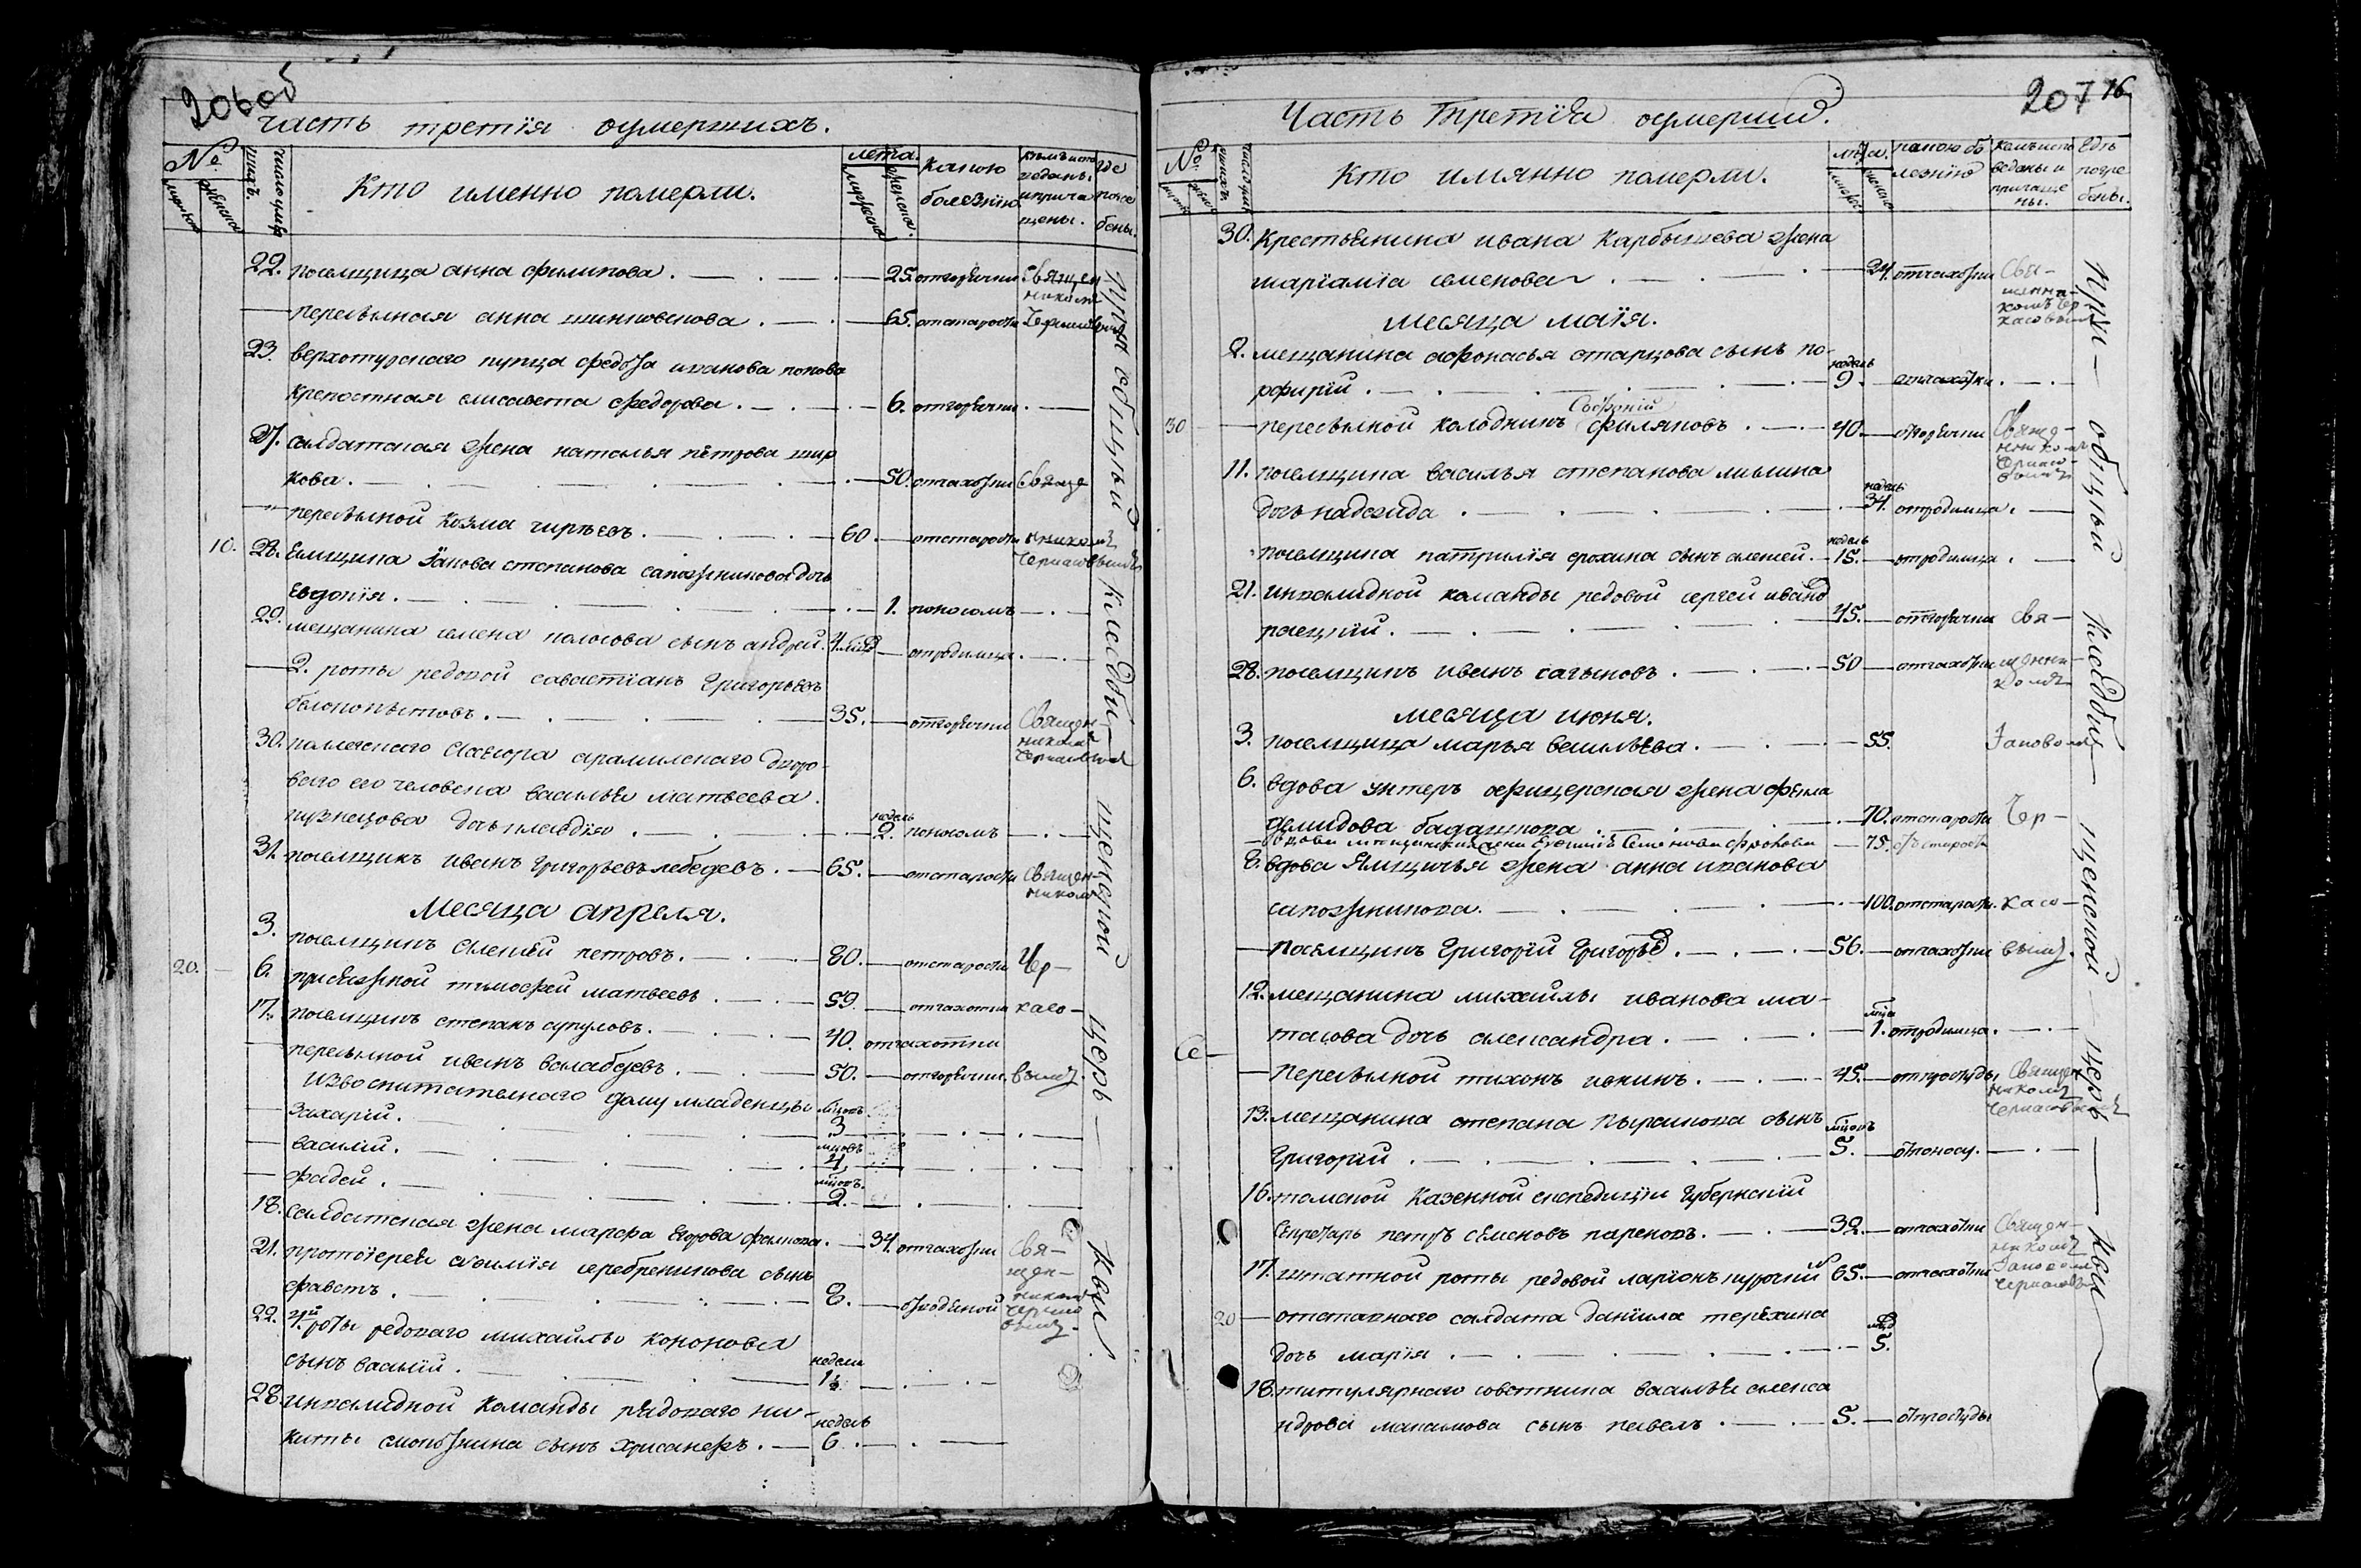 206 об
часть третïя оумершихъ.
№
мужска
женска
число умер
шихъ.
Кто именно померли.
лета.
мужеска
женска.
какою
болезнïю
кемъ испо
веданы
и прича
щены.
где
погре
бены.
22. поселщица анна филипова. 25. отгорячки Священ
никомъ
пересылная анна 65. отстарости Черкасовымъ
23. верхотурскаго купца федора иванова попова
крепостная елисавета федорова. 6. отгорячки.
27. салдатская жена наталья петрова шир
кова. 50. отчахотки Свяще
пересылной козма чиръевъ. 60. отстарости нникомъ
Черкасовымъ
10. 28. Ямщика Якова степанова сапожникова дочь
Евдокïя. 1. поносомъ
29. мещанина семена колосова сынъ андрей. 4. отродимца.
2. роты редовой савастïанъ Григорьевъ
белокопытовъ. 35. отгорячки Священ-
никомъ
Черкасовымъ
30. арамилскаго дворо-
ваго его человека василья матвеева
кузнецова дочь клавдïя. недель
2. поносомъ
31. поселщикъ иванъ Григорьевъ лебедевъ. 65. отстарости Священ-
никомъ
Месяца апреля.
3. поселщикъ Алексей петровъ. 80. отстарости Чер-
20. 6. присяжной тимофей матвеевъ. 59. отчахотки касо-
17. поселщикъ степанъ сукуловъ. 40. отчахотки
пересылной иванъ балабаевъ. 50. отгорячки. вымъ.
Извоспитателного дому младенцы
Захарïй. мцовъ
3
василïй. мцовъ
4
фадей. мцовъ.
2.
18. салдатская жена марфа Егорова фомина. 34. отчахотки Свя-
21. протоïерея серебреникова сынъ щен-
никомъ
фавстъ. 8. Черкасо
вымъ.
22. 4й роты редоваго михайлы кононова
сынъ василïй. недели
1½
28. инвалидной команды рядоваго ни-
киты сынъ хрисанфъ. недель
6.
При общый кладби- щенской церк- кви
207
16
Часть Третïя оумерши.
№
число умер
шихъ
Кто имянно померли.
лета.
какою бо
лезнïю
Кемъ испо
веданы и
причаще
ны.
Где
погре
бены.
30. крестьянина ивана Карбышева жена
марïамïа семенова 24. отчахотки Свя-
щенни-
комъ Чер
касовымъ
Месяца маïя.
2. мещанина афонасья старцова сынъ по-
рфирïй. недель
9. отчахотки.
30 пересылной колодникъ Софонïй филяповъ. 40. отгорячки Свяще-
нникомъ
Черкасо-
вымъ
11. поселщика василья степанова милина
дочь надежда недель
34. отродимца.
поселщика ерохина сынъ алексей. недель
15. отродимца.
21. инвалидной команды редовой сергей иванъ
раецкïй. 45. отгорячки Свя-
28. поселщикъ иванъ сагыновъ. 50 отчахотки щенни-
комъ
Месяца июня.
3. поселщица марья васильева. 55. Iаково м
6. вдова унтеръ офицерская жена фекла
демидова бадашкова. 70. отстарости Чер-
вдова мещанская жена Евгенïя Семенова Фролова 75. отстарости
8. вдова Ямщичья жена анна иванова
сапожникова. 100. отстарости. касо-
поселщикъ Григорïй Григорьев. 56. отчахотки вымъ.
12. мещанина михайлы иванова ма-
тасова дочь александра. мца
1. отродимца.
пересылной тихонъ ионинъ. 45. отпростуды Священ
никомъ
Черкасовымъ
13. мещанина степана Пыршкова сынъ
Григорïй мцовъ
5. отпоносу.
16. томской Казенной експедицïи Губернскïй
секретарь петръ семеновъ пареновъ. 32. отчахотки Священ-
никомъ
17. штатной роты редовой ларïонъ 65. отчахотки Iаковомъ
Черкасовым
20 отставного салдата данïила терехина
дочь марïя мцов
5.
18. титулярнаго советника василья алекса
ндрова максимова сынъ павелъ 5. отпростуды
При общый кладби- щенской церк- кви